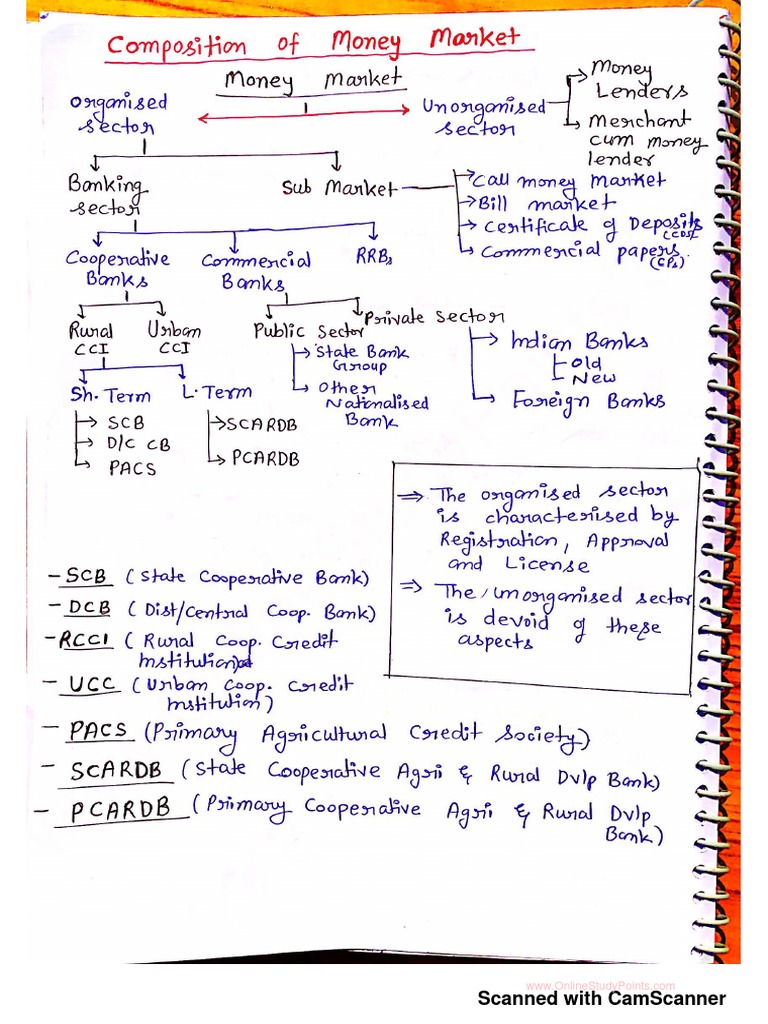 Composition of Money Market
Money Market
Organised
sector
Unorganised
sector
Money
Lenders
Merchant
cum money
lender
Banking
sector
Sub Market
Call money market
Bill market
Certificate of Deposits
(CDs)
Commercial papers.
(CPs)
Cooperative
Banks
Commercial
Banks
RRBs
Rural
CCI
Urban
CCI
Public Sector
Private sector
State Bank
Group
Other
Nationalised
Bank
Indian Banks
Old
New
Foreign Banks
Sh. Term
L. Term
SCB
D/C CB
PACS
SCARDB
PCARDB
⇒ The organised sector
is characterised by
Registration, Approval
and License
⇒ The unorganised sector
is devoid of these
aspects
- SCB (State Cooperative Bank)
- DCB (Dist/Central Coop. Bank)
- RCCI (Rural Coop. Credit
Institution)
- UCC (Urban Coop. Credit
Institution)
- PACS (Primary Agricultural Credit Society)
- SCARDB (State Cooperative Agri & Rural Dvlp Bank)
- PCARDB (Primary Cooperative Agri & Rural Dvlp
Bank)
www.OnlineStudyPoints.com
Scanned with CamScanner